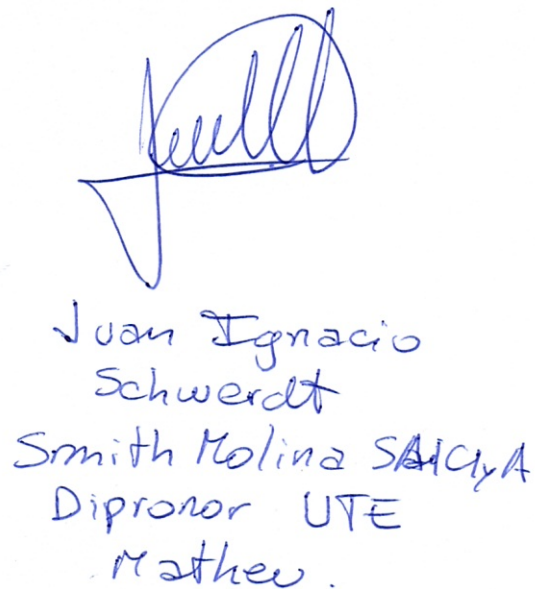 Juan Ignacio
Schwerdt
Smith Molina SAICIyA
Dipronor UTE
Matheu.